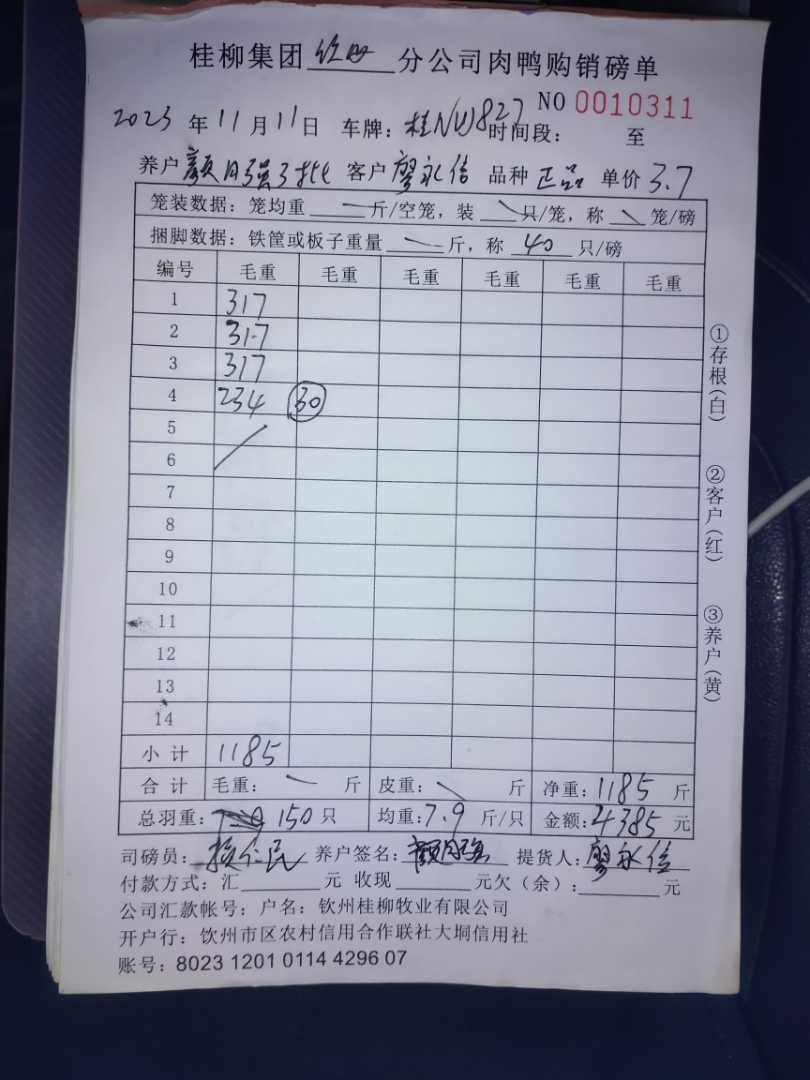 桂柳集团 钦州 分公司肉鸭购销磅单
NO 0010311
2023 年 11 月 11 日 车牌: 桂NW827 时间段: 至
养户 颜月强3批 客户 廖永信 品种 正品 单价 3.7
笼装数据: 笼均重 斤/空笼, 装 只/笼, 称 笼/磅
捆脚数据: 铁筐或板子重量 斤, 称 40 只/磅
编号 毛重 毛重 毛重 毛重 毛重 毛重
1 317
2 317
3 317
4 234 30
5
6
7
8
9
10
11
12
13
14
小计 1185
合计 毛重: 斤 皮重: 斤 净重: 1185 斤
总羽重: 150 只 均重: 7.9 斤/只 金额: 4385 元
司磅员: 养户签名: 颜月强 提货人: 廖永信
付款方式: 汇 元 收现 元欠(余): 元
公司汇款帐号: 户名: 钦州桂柳牧业有限公司
开户行: 钦州市区农村信用合作联社大垌信用社
账号: 8023 1201 0114 4296 07
①存根(白)
②客户(红)
③养户(黄)